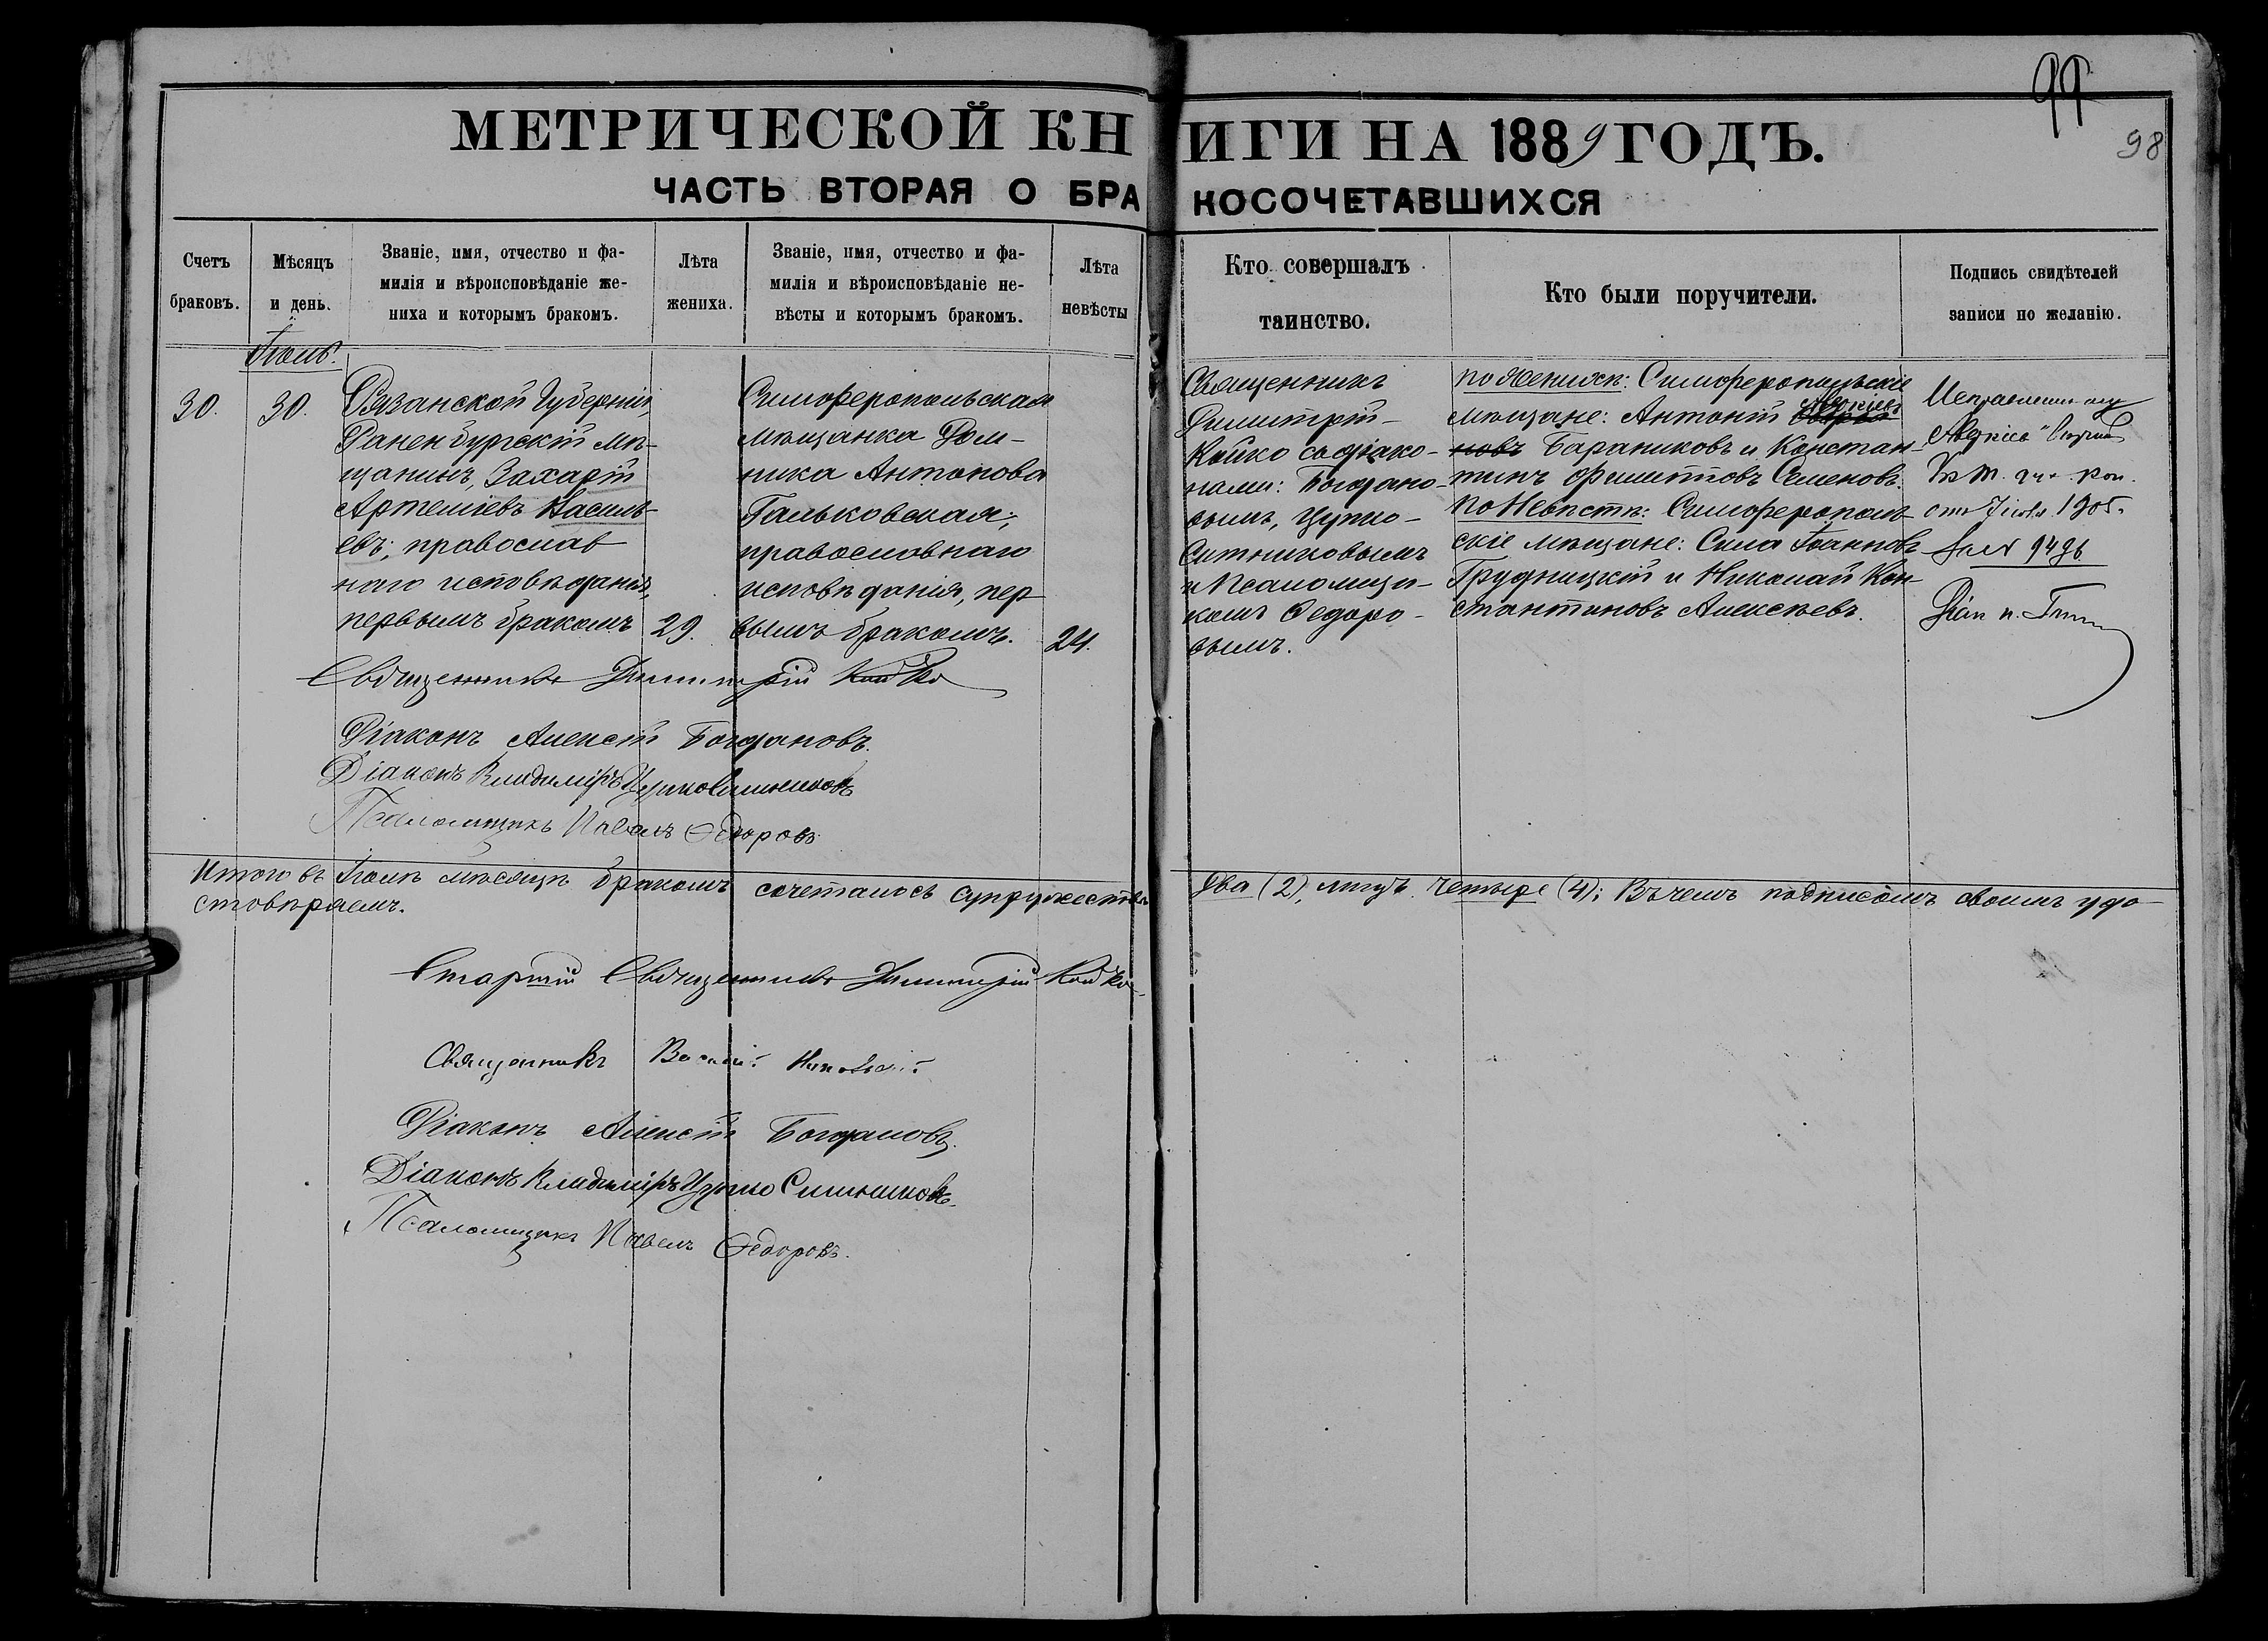 99
98
МЕТРИЧЕСКОЙ КНИГИ НА 1889 ГОДЪ.
ЧАСТЬ ВТОРАЯ О БРАКОСОЧЕТАВШИХСЯ
Счетъ
браковъ.
Мѣсяцъ
и день.
Званіе, имя, отчество и фа-
милія и вѣроисповѣданіе же-
ниха и которымъ бракомъ.
Лѣта
жениха.
Званіе, имя, отчество и фа-
милія и вѣроисповѣданіе не-
вѣсты и которымъ бракомъ.
Лѣта
невѣсты
Кто совершалъ
таинство.
Кто были поручители.
Подпись свидѣтелей
записи по желанію.
30.
30.
Рязанской Губерніи,
Раненбургскій мѣ-
щанинъ, Захарій
Артеміевъ Василь-
евъ; православ
наго исповѣданія,
первымъ бракомъ
29.
Симферопольская
мѣщанка Дом-
ника Антонова
Гальковская;
православнаго
исповѣданія, пер
вымъ бракомъ.
24.
Священникъ
Димитрій
Койко съ діако-
нами: Богдано-
вымъ, Цупко-
Ситниковымъ
и Псаломщи-
комъ Федоро-
вымъ.
По Женихѣ: Симферопольскіе
мѣщане: Антоній Авдкіевъ
новъ Бараниковъ и Констан-
тинъ Филипповъ Семеновъ.
По Невѣстѣ: Симферополь
скіе мѣщане: Сила Іоанновъ
Грудницкій и Николай Кон
стантиновъ Алексѣевъ.
1905.
9496
Священникъ Димитрій Койко
Діаконъ Алексій Богдановъ.
Діаконъ Владиміръ Цупко Ситниковъ
Псаломщикъ Павелъ Ѳедоровъ
Итого въ мѣсяцѣ бракомъ сочеталось супружества два (2), лицъ четыре (4); въ чемъ подписомъ своимъ удо-
стовѣряемъ.
Старшій Священникъ Димитрій Койко
Священникъ Василій
Діаконъ Алексій Богдановъ.
Діаконъ Владиміръ Цупко Ситниковъ.
Псаломщикъ Павелъ Ѳедоровъ.